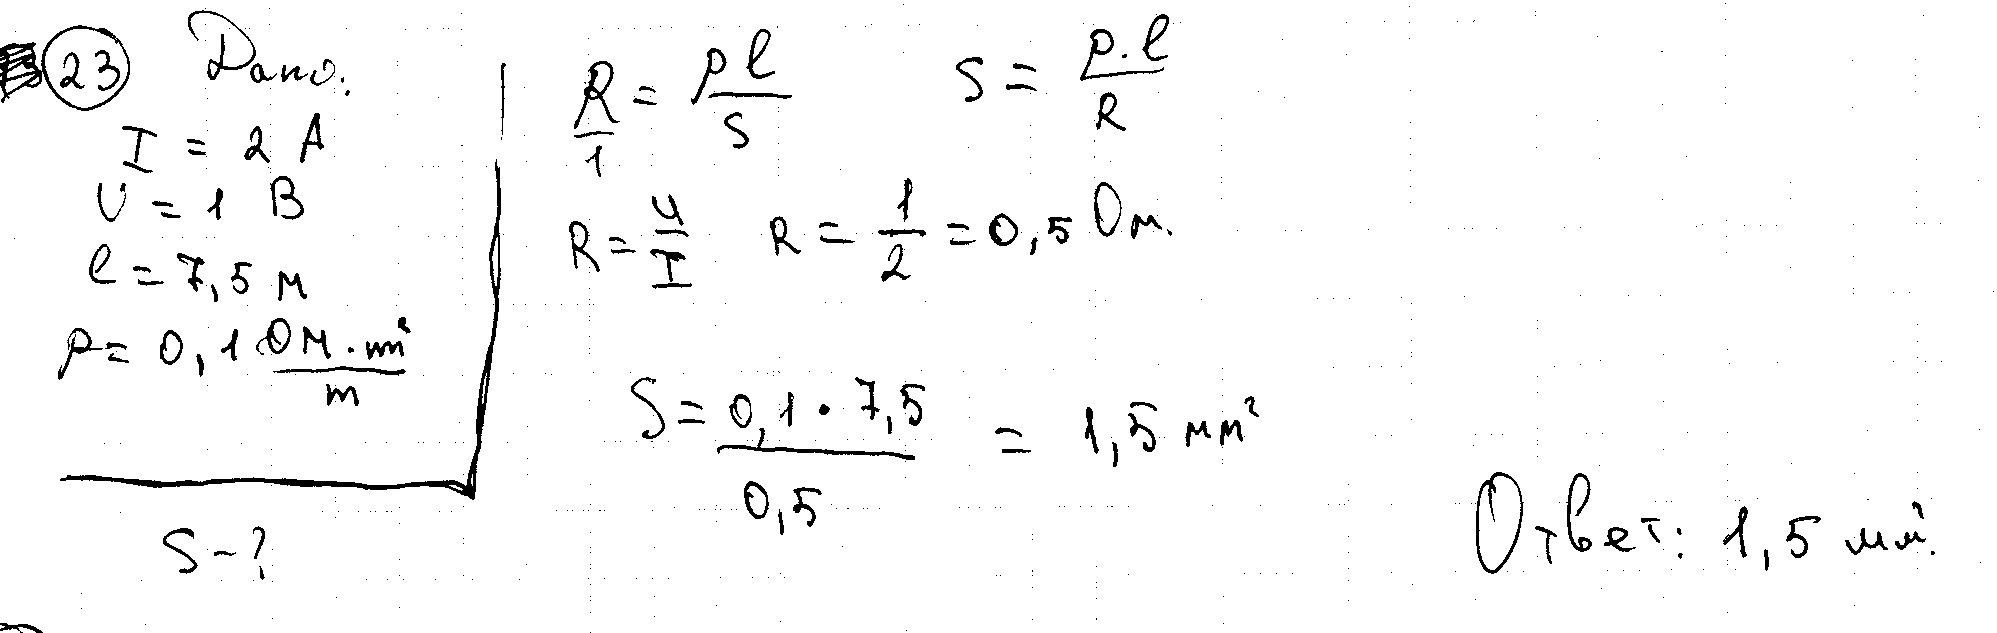 23 Дано:
I = 2 А
U = 1 В
l = 7,5 м
ρ = 0,1 Ом·мм²/м
S - ?
R/1 = ρl/S S = ρ·l/R
R = U/I R = 1/2 = 0,5 Ом.
S = 0,1 · 7,5/0,5 = 1,5 мм²
Ответ: 1,5 мм².